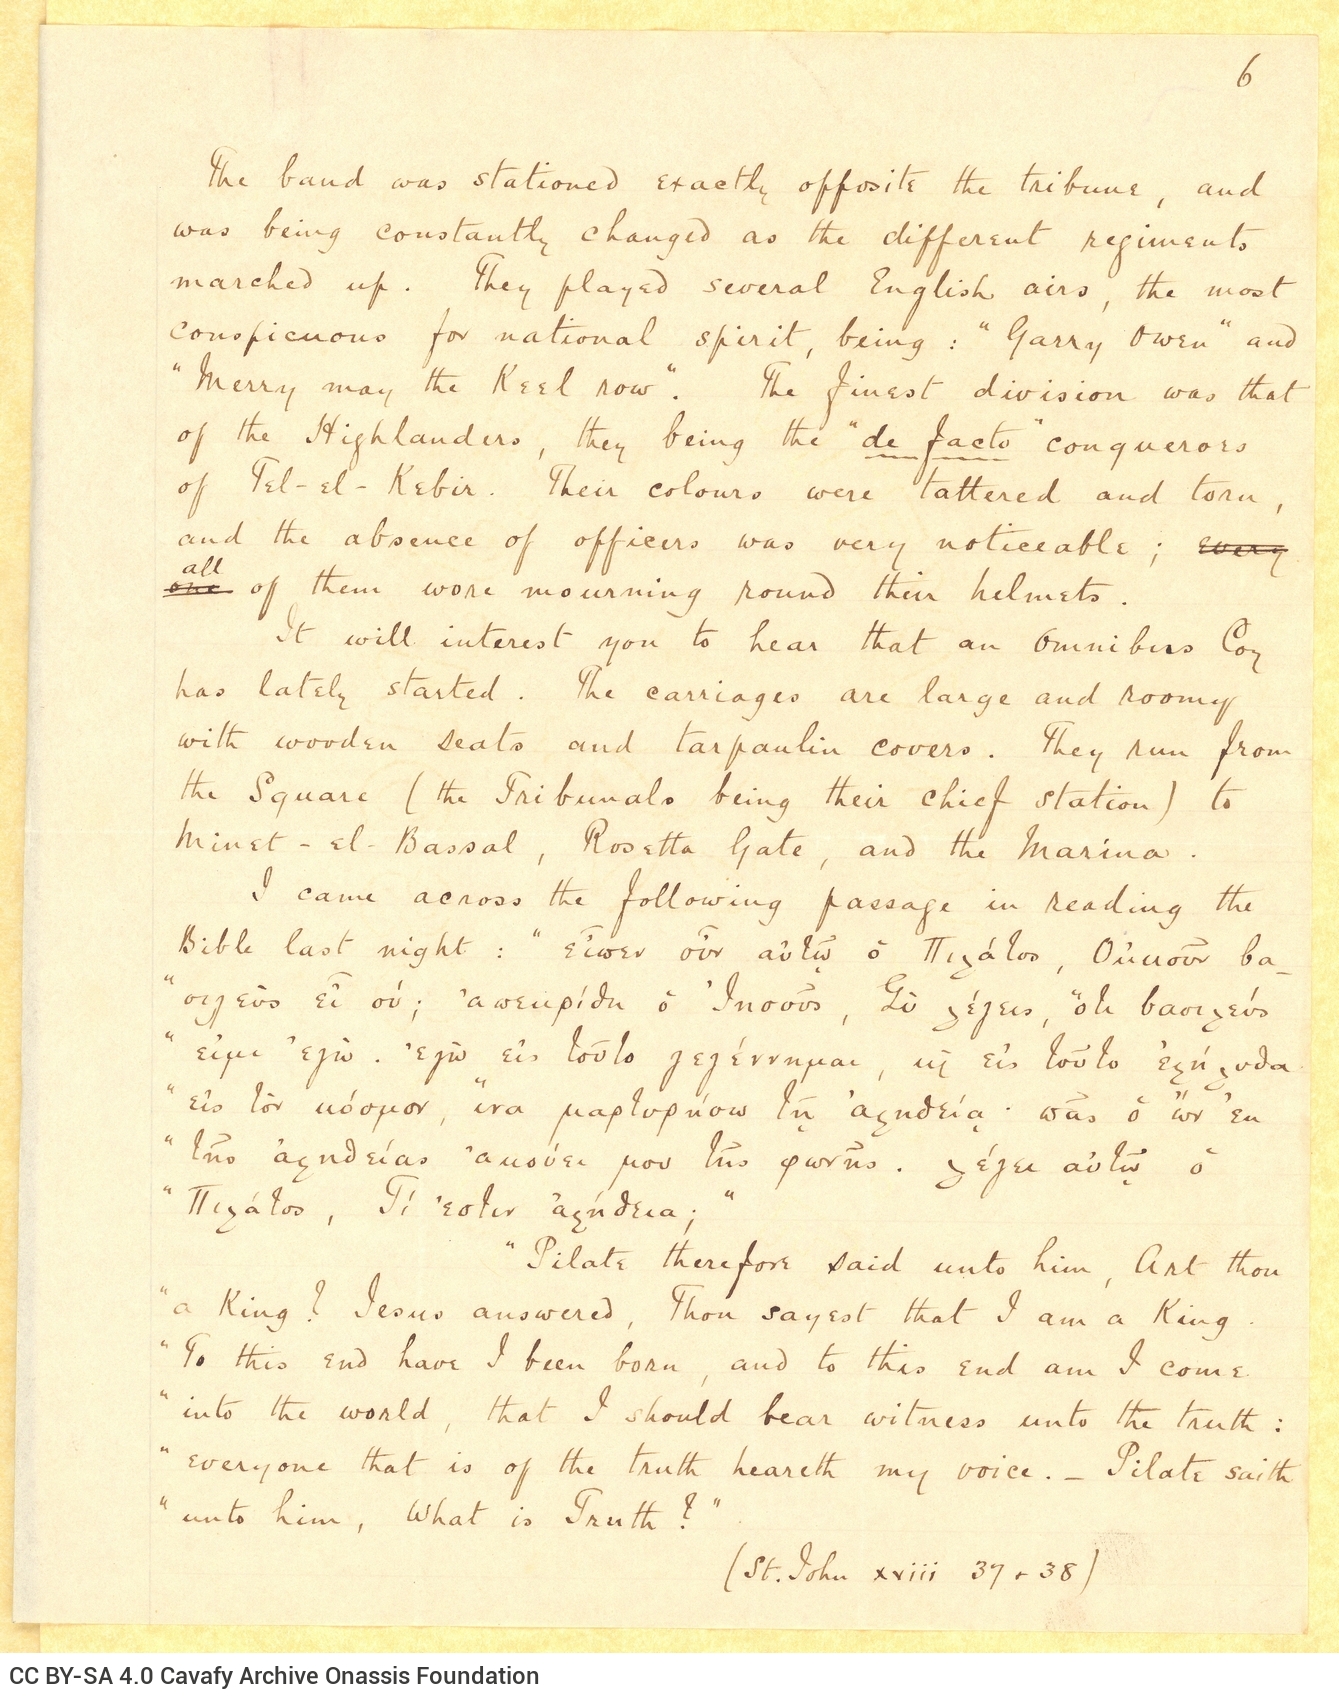 6
The band was stationed exactly opposite the tribune, and
was being constantly changed as the different regiments
marched up. They played several English airs, the most
conspicuous for national spirit, being : "Garry Owen" and
"Merry may the Keel row". The finest division was that
of the Highlanders, they being the "de facto" conquerors
of Tel-el-Kebir. Their colours were tattered and torn,
and the absence of officers was very noticeable; every
all
one of them wore mourning round their helmets.
It will interest you to hear that an Omnibus Coy
has lately started. The carriages are large and roomy
with wooden seats and tarpaulin covers. They run from
the Square (the Tribunals being their chief station) to
Minet-el-Bassal, Rosetta Gate, and the Marina.
I came across the following passage in reading the
Bible last night : "εἶπεν οὖν αὐτῷ ὁ Πιλάτος, Οὐκοῦν βα-
"σιλεὺς εἶ σύ; ἀπεκρίθη ὁ Ἰησοῦς, Σὺ λέγεις, ὅτι βασιλεύς
"εἰμι ἐγὼ. ἐγὼ εἰς τοῦτο γεγέννημαι, κὶ εἰς τοῦτο ἐλήλυθα
"εἰς τὸν κόσμον, ἵνα μαρτυρήσω τῇ ἀληθείᾳ· πᾶς ὁ ὢν ἐκ
"τῆς ἀληθείας ἀκούει μου τῆς φωνῆς. λέγει αὐτῷ ὁ
"Πιλάτος, Τί ἐστιν ἀλήθεια;"
"Pilate therefore said unto him, Art thou
"a King? Jesus answered, Thou sayest that I am a King.
"To this end have I been born, and to this end am I come
"into the world, that I should bear witness unto the truth:
"everyone that is of the truth heareth my voice. – Pilate saith
"unto him, What is Truth?"
(St. John xviii 37 + 38)
CC BY-SA 4.0 Cavafy Archive Onassis Foundation